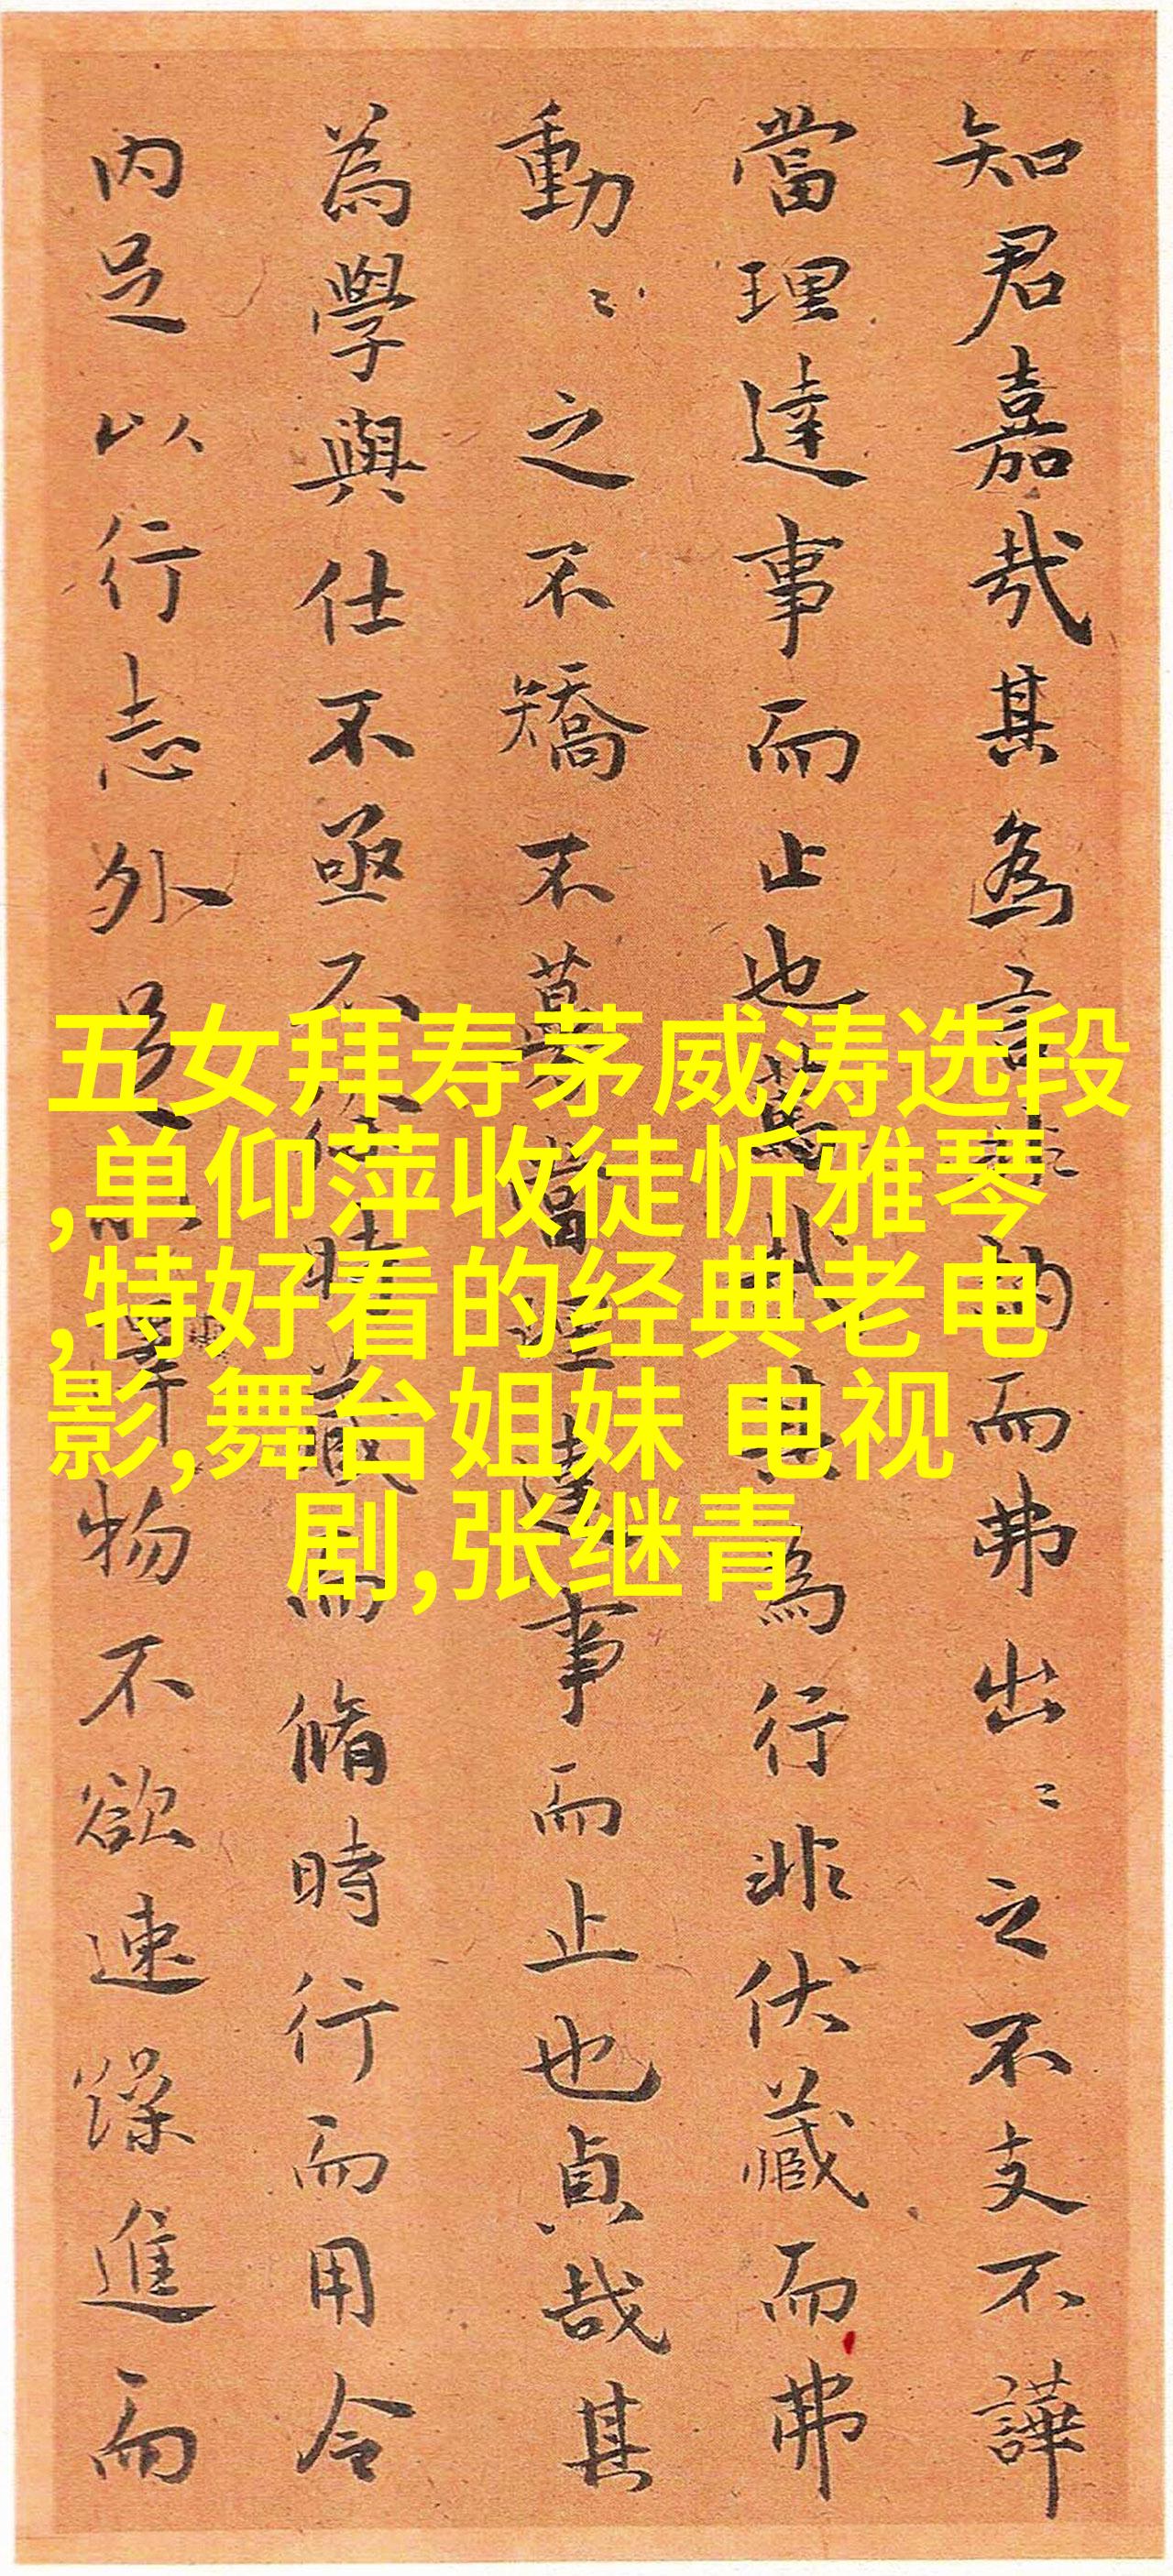 知君嘉哉其為言非訥而弗出〻之不支不譁
當理達事而止也篤哉其為行非伏藏而弗
動〻之不矯不募當理達事而止也貞哉其
為學與仕不亟不時藏而脩時行而用令
内足以行志外足以澤物不欲速躁進而
五女拜寿茅威涛选段
,单仰萍收徒忻雅琴
,特好看的经典老电
影,舞台姐妹 电视
剧,张继青